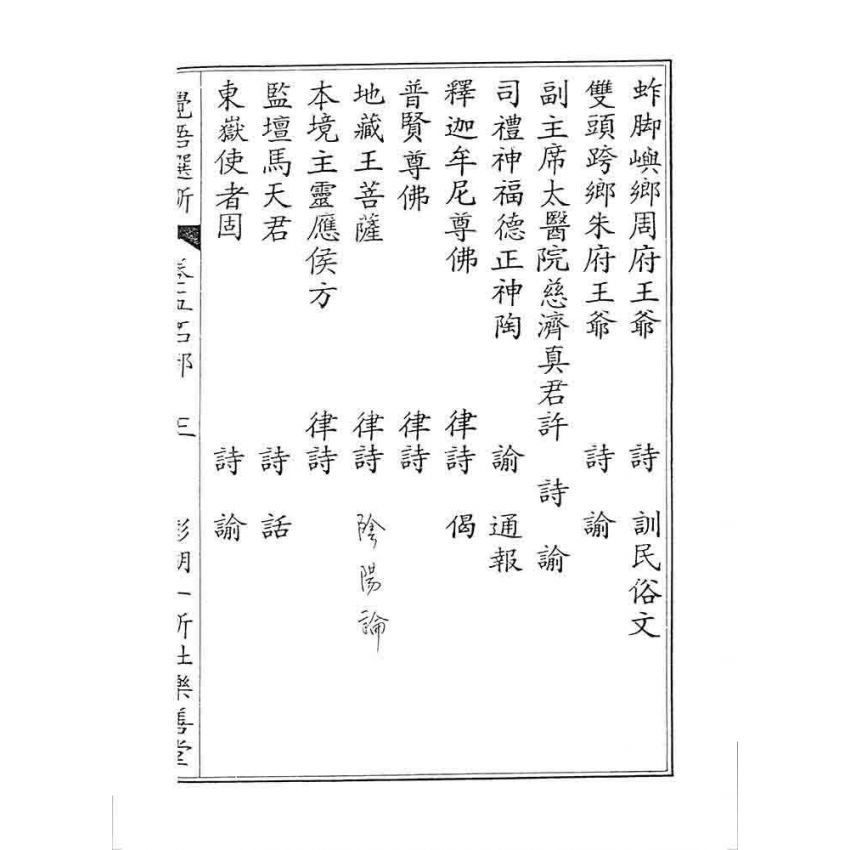 蚱脚嶼鄉周府王爺 詩 訓民俗文
雙頭跨鄉朱府王爺 詩 諭
副主席太醫院慈濟真君許 詩 諭
司禮神福德正神陶 諭 通報
釋迦牟尼尊佛 律詩 偈
普賢尊佛 律詩
地藏王菩薩 律詩 陰陽論
本境主靈應侯方 律詩
監壇馬天君 詩 話
東嶽使者固 詩 諭
覺悟選新 卷五石部 三 澎湖一新社樂善堂